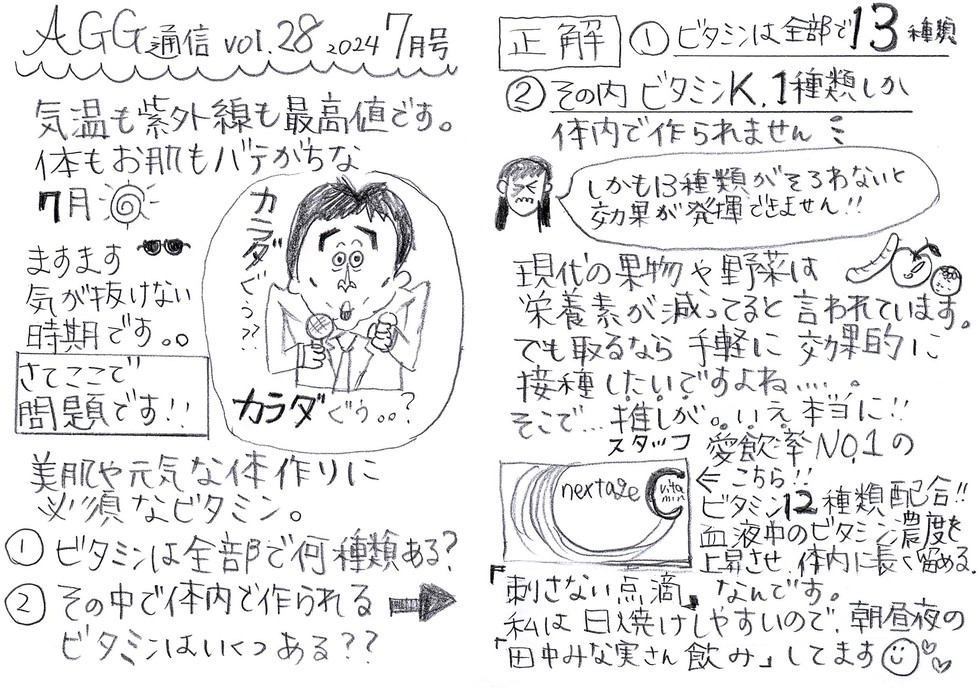 AGG通信 vol.28 2024 7月号
気温も紫外線も最高値です。
体もお肌もバテがちな
7月
ますます
気が抜けない
時期です。。
さてここで
問題です!!
カラダぐぅ??
カラダぐぅ。。?
美肌や元気な体作りに
必須なビタミン。
① ビタミンは全部で何種類ある?
② その中で体内で作られる
ビタミンはいくつある??
正解 ① ビタミンは全部で13種類
② その内 ビタミンK.1種類しか
体内で作られません
しかも13種類がそろわないと
効果が発揮できません!!
現代の果物や野菜は
栄養素が減ってると言われています。
でも取るなら 手軽に 効果的に
接種したいですよね....。
そこで... 推しが。。いえ本当に!!
スタッフ 愛飲率NO.1の
こちら!!
nextage
C vita min
ビタミン12種類配合!!
血液中のビタミン濃度を
上昇させ、体内に長く留める.
「刺さない点滴」なんです。
私は日焼けしやすいので、朝昼夜の
「田中みな実さん飲み」してます